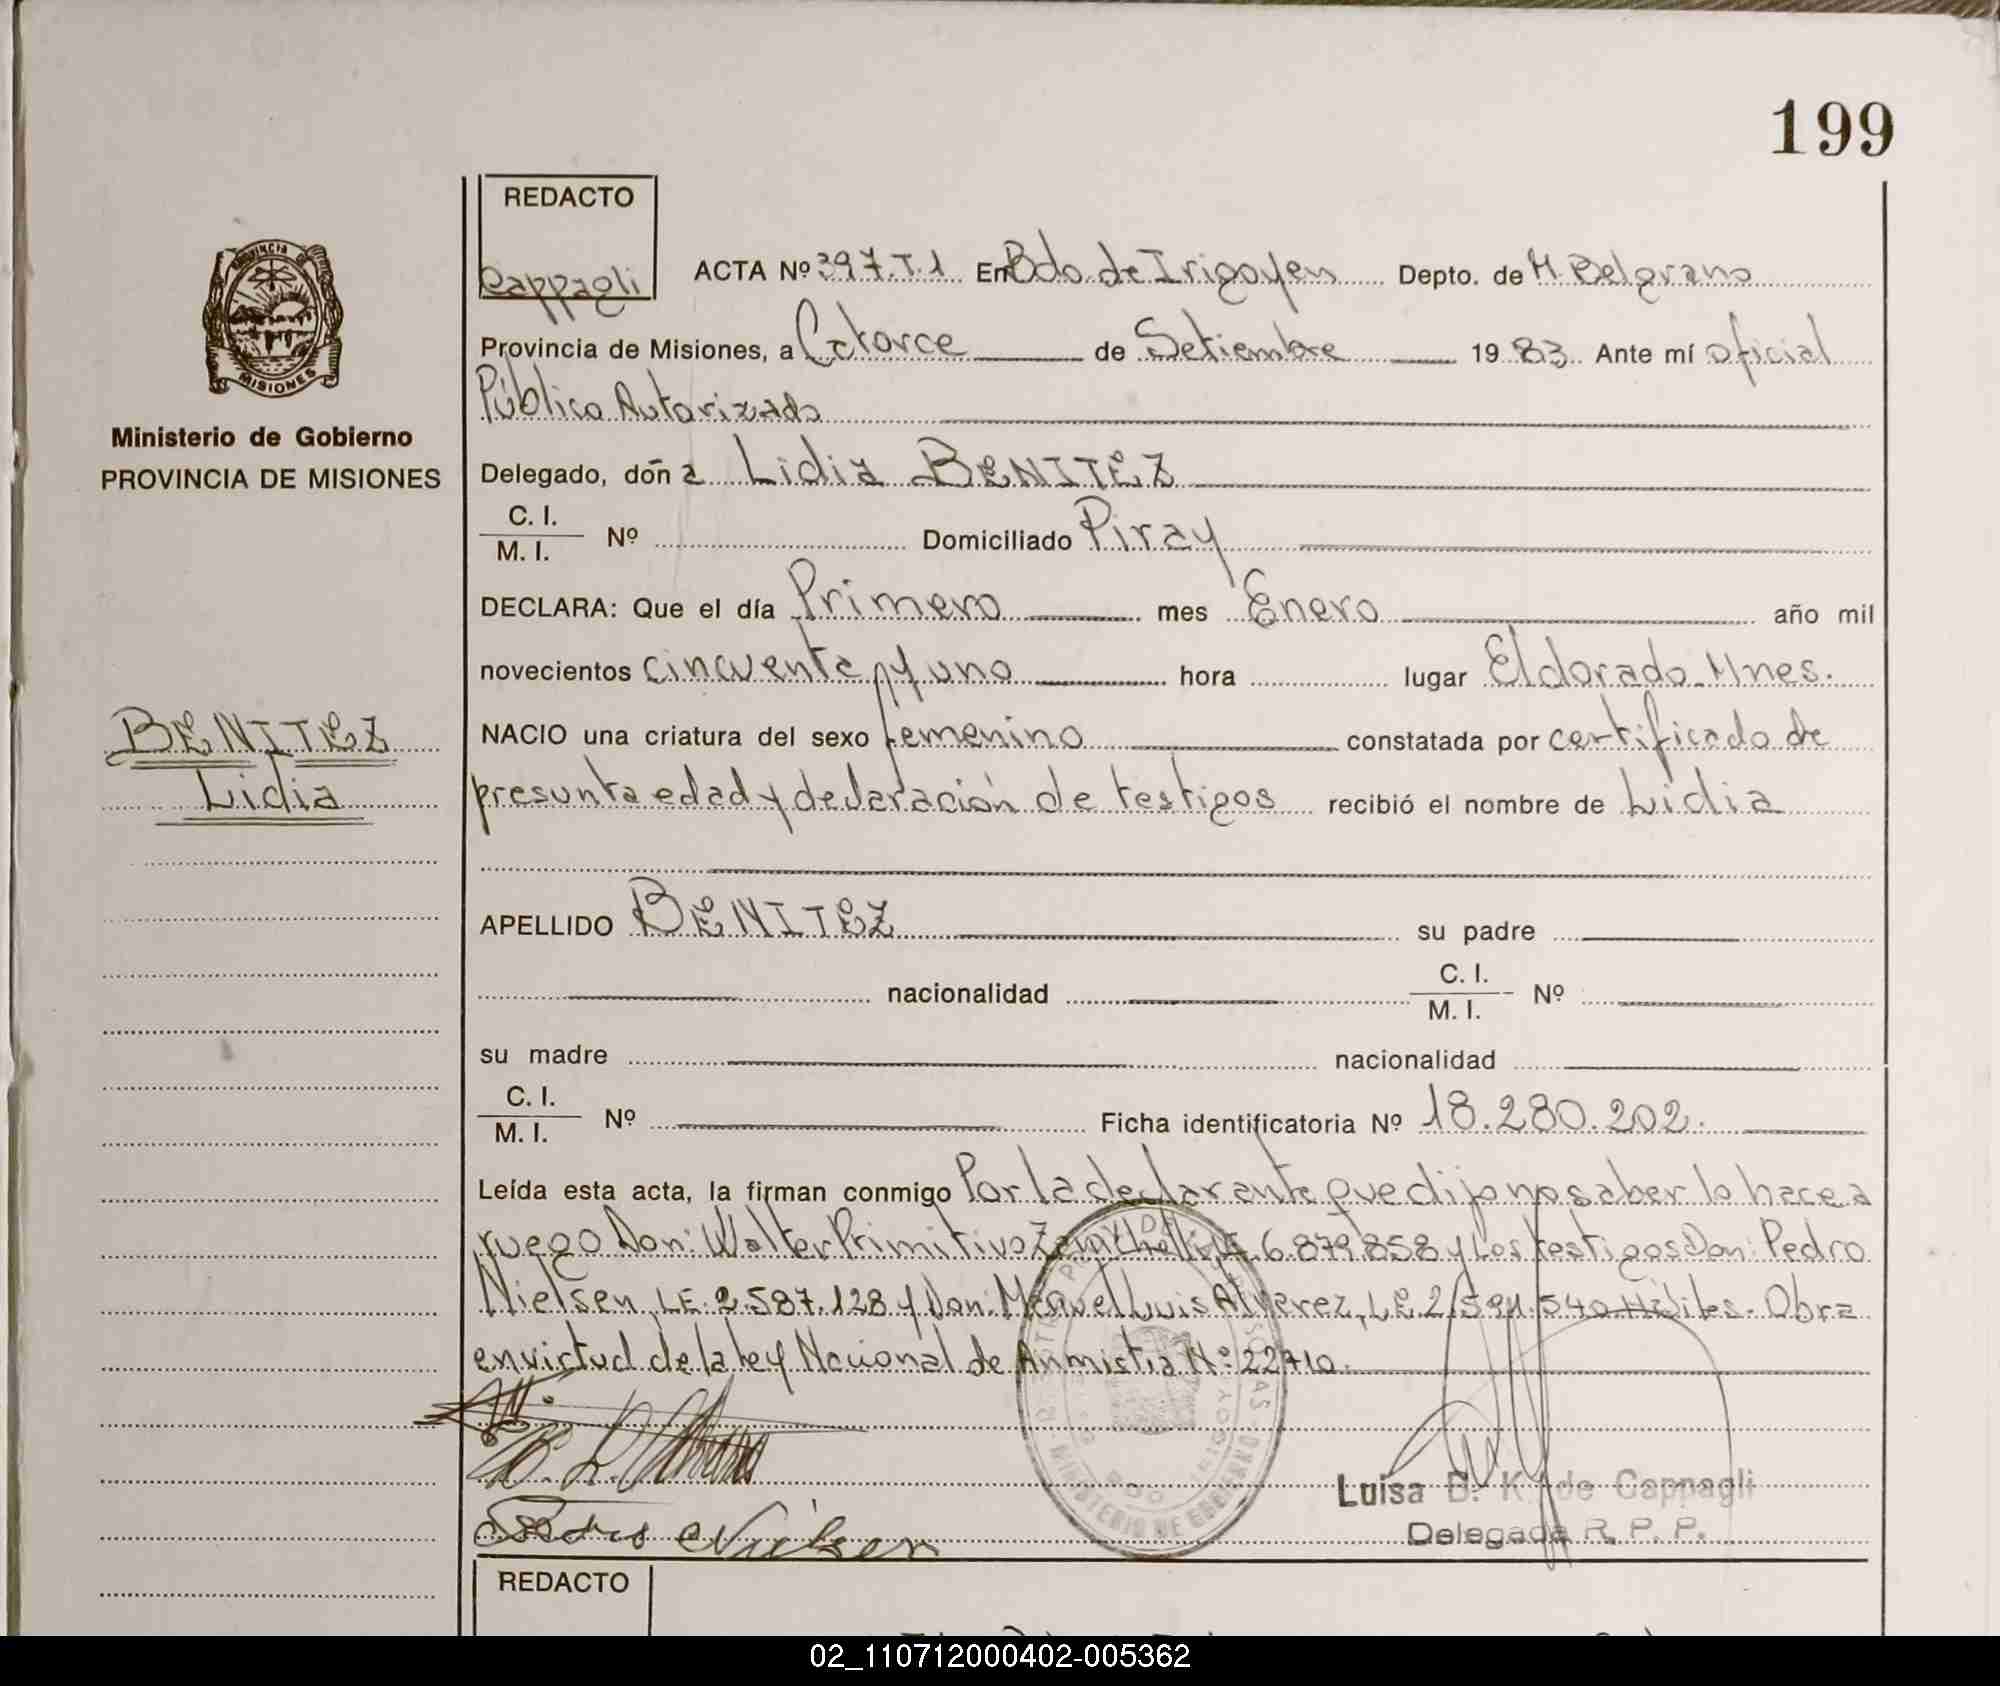 199
REDACTO
Cappagli
ACTA Nº 397.T.1 En Bdo. de Irigoyen Depto. de M. Belgrano
Provincia de Misiones, a Catorce de Setiembre 19 83. Ante mí oficial
Público Autorizado
Delegado, don a Lidia BENITEZ
C. I.
M. I. Nº Domiciliado Piray
DECLARA: Que el día Primero mes Enero año mil
novecientos cincuenta y uno hora lugar Eldorado Mnes.
NACIO una criatura del sexo femenino constatada por certificado de
presunta edad y declaración de testigos recibió el nombre de Lidia
APELLIDO BENITEZ su padre
nacionalidad C. I.
M. I. Nº
su madre nacionalidad
C. I.
M. I. Nº Ficha identificatoria Nº 18.280.202.
Leída esta acta, la firman conmigo Por la declarante que dijo no saber lo hace a
ruego Don: Walter Primitivo 6.879.858 y Los testigos Don: Pedro
Nielsen, LE. 2.587.128 y Don: Manuel Luis Alvarez, LE 2.591.540 Obra
en victud de la Ley Nacional de Anmistia Nº: 22710.
Pedro Nielsen
Luisa B. K. de Cappagli
Delegada R. P. P.
PROVINCIA DE
MISIONES
Ministerio de Gobierno
PROVINCIA DE MISIONES
BENITEZ
Lidia
MINISTERIO DE GOBIERNO
REDACTO
02_110712000402-005362